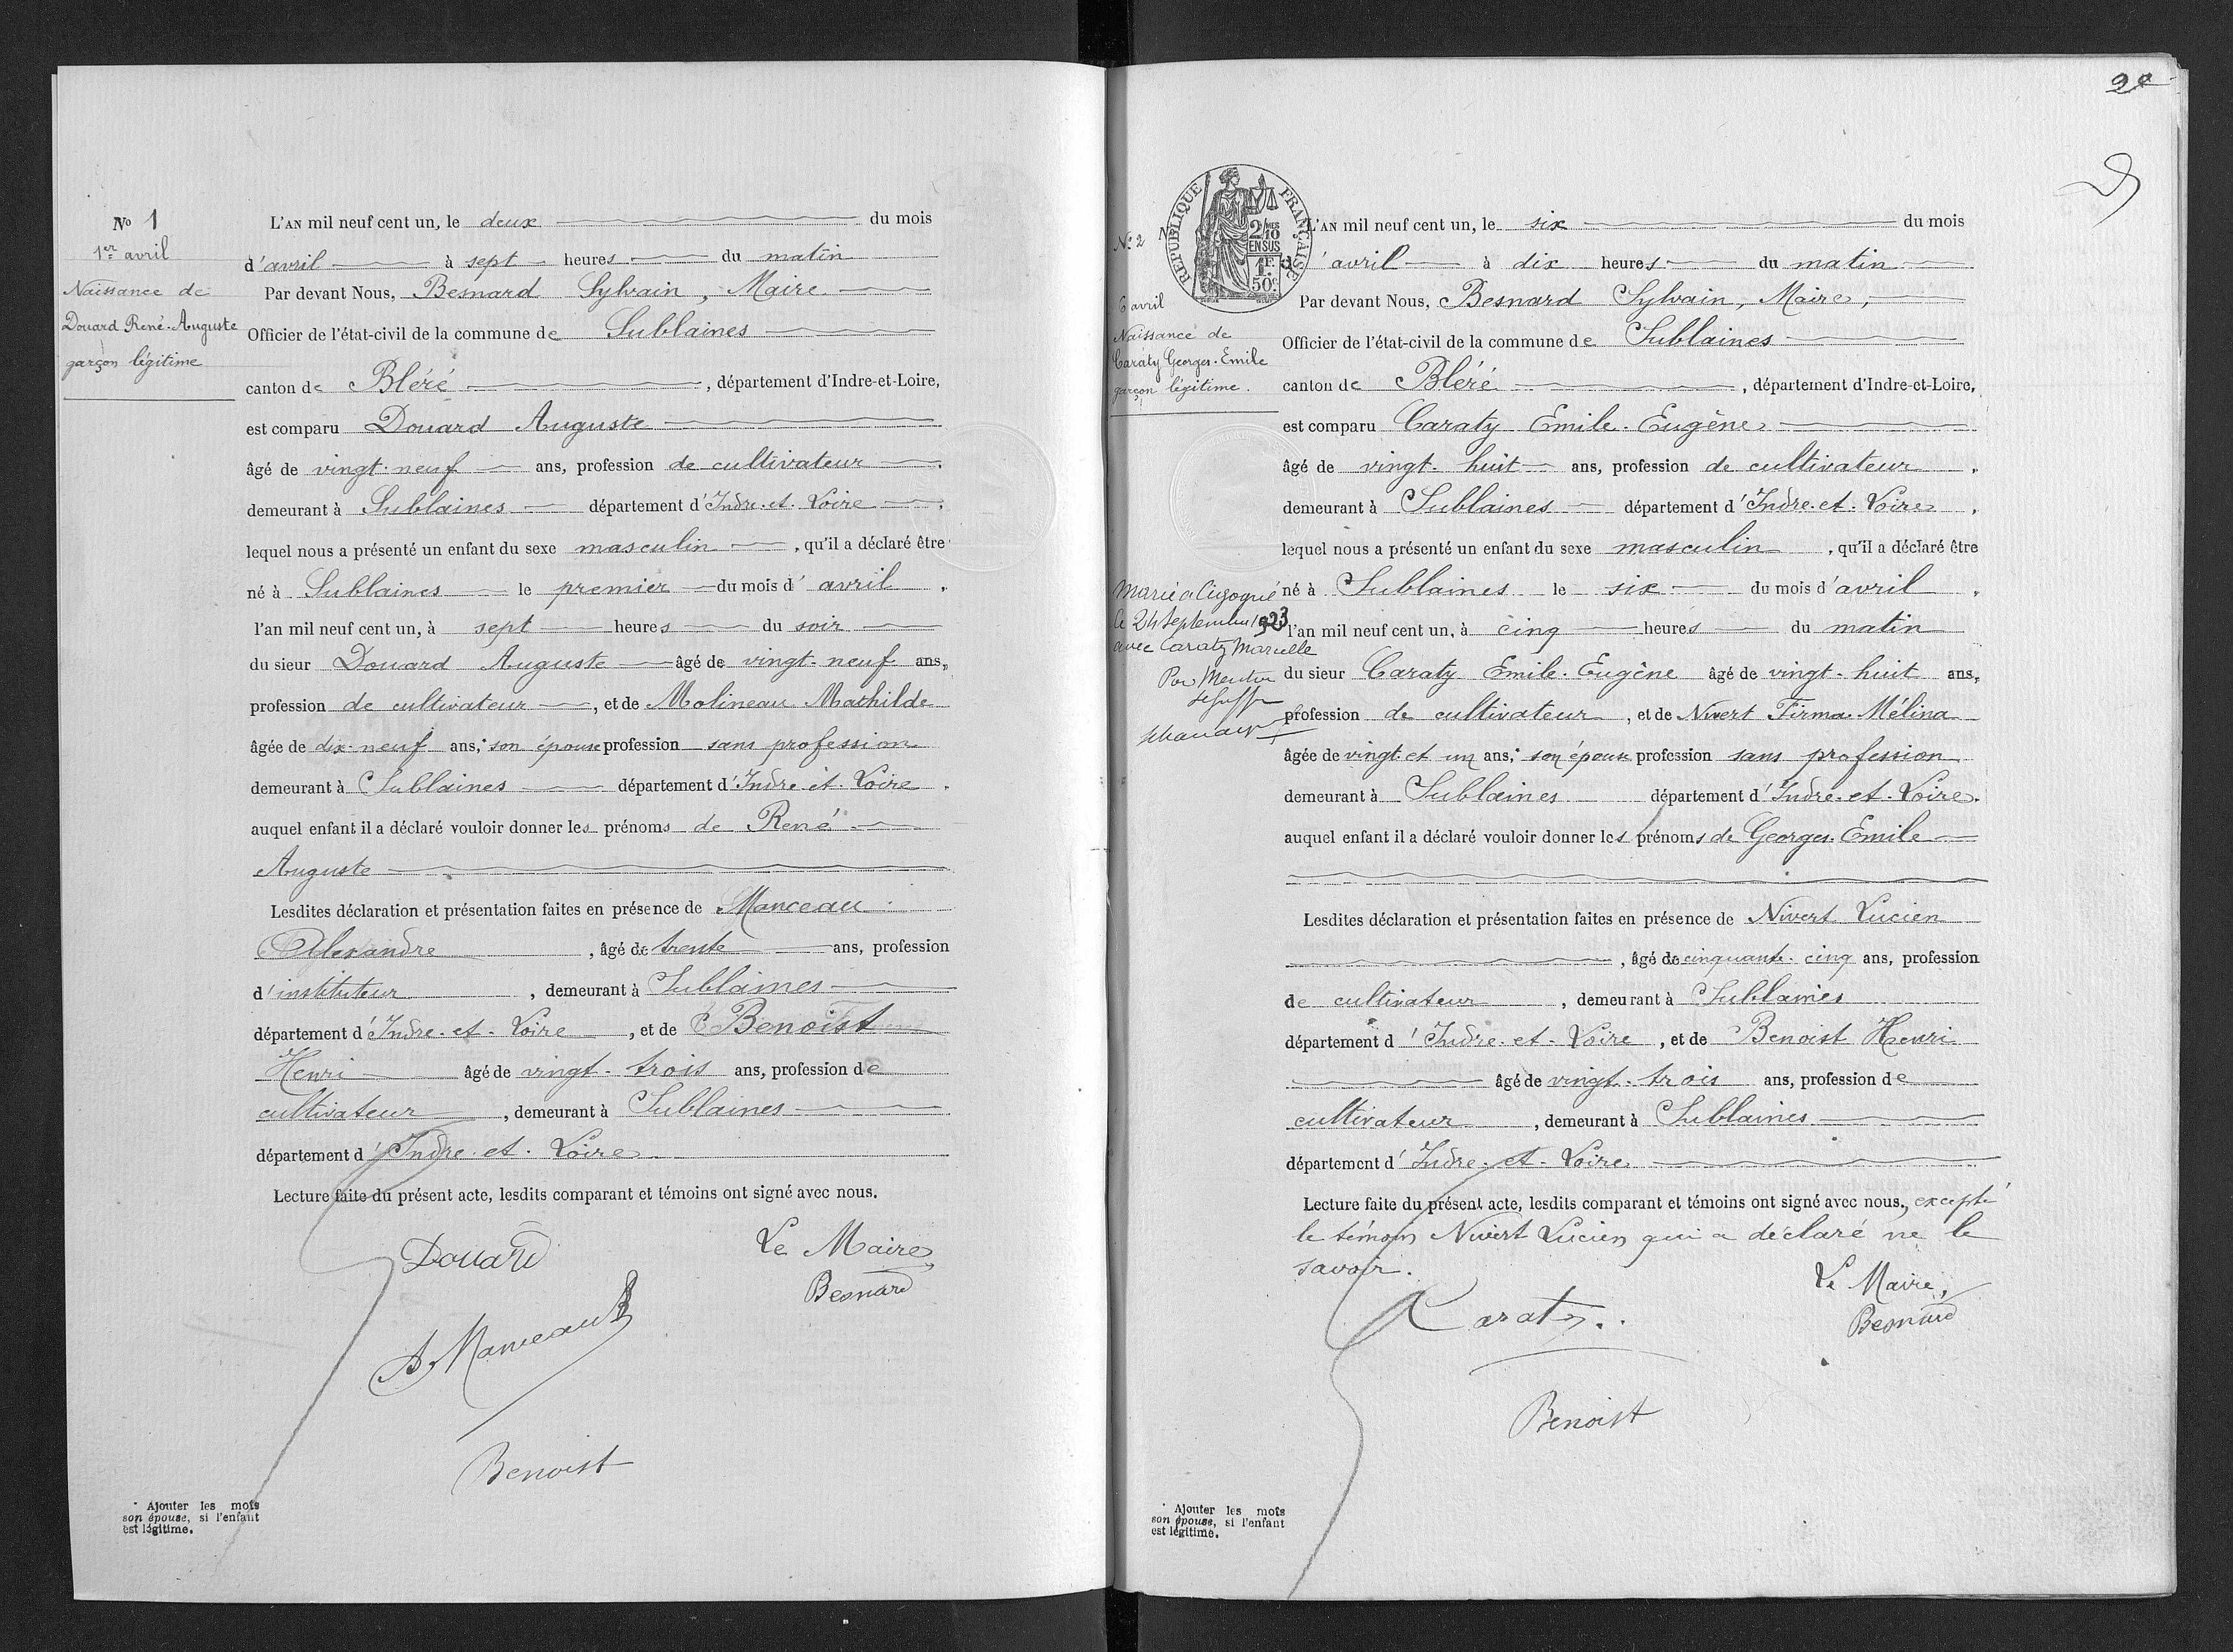 No 1
1er avril
Naissance de
Douard René-Auguste
garçon légitime
L'AN mil neuf cent un, le deux du mois
d'avril à sept heures du matin
Par devant Nous, Besnard Sylvain, Maire
Officier de l'état-civil de la commune de Sublaines
canton de Bléré, département d'Indre-et-Loire,
est comparu Douard Auguste
âgé de vingt-neuf ans, profession de cultivateur,
demeurant à Sublaines département d'Indre-et-Loire,
lequel nous a présenté un enfant du sexe masculin, qu'il a déclaré être
né à Sublaines le premier du mois d'avril,
l'an mil neuf cent un, à sept heures du soir
du sieur Douard Auguste âgé de vingt-neuf ans,
profession de cultivateur, et de Molineau Mathilde
âgée de dix-neuf ans,* son épouse profession sans profession
demeurant à Sublaines département d'Indre-et-Loire.
auquel enfant il a déclaré vouloir donner les prénoms de René
Auguste
Lesdites déclaration et présentation faites en présence de Manceau
Alexandre, âgé de trente ans, profession
d'instituteur, demeurant à Sublaines
département d'Indre-et-Loire, et de Benoist
Henri âgé de vingt-trois ans, profession de
cultivateur, demeurant à Sublaines
département d'Indre-et-Loire
Lecture faite du présent acte, lesdits comparant et témoins ont signé avec nous.
Douard
Le Maire
Besnard
A. Manceau
Benoist
* Ajouter les mots
son épouse, si l'enfant
est légitime.
2e
RÉPUBLIQUE FRANÇAISE
2/10 MES
EN SUS
1F.
50c.
No 2
6 avril
Naissance de
Caraty Georges-Emile
garçon légitime.
Marié à Cigogné
le 24 Septembre 1923
avec Caraty Marcelle
L'AN mil neuf cent un, le six du mois
d'avril à dix heures du matin
Par devant Nous, Besnard Sylvain, Maire,
Officier de l'état-civil de la commune de Sublaines
canton de Bléré, département d'Indre-et-Loire,
est comparu Caraty Emile-Eugène
âgé de vingt-huit ans, profession de cultivateur,
demeurant à Sublaines département d'Indre-et-Loire,
lequel nous a présenté un enfant du sexe masculin, qu'il a déclaré être
né à Sublaines le six du mois d'avril,
l'an mil neuf cent un, à cinq heures du matin
du sieur Caraty Emile-Eugène âgé de vingt-huit ans,
profession de cultivateur, et de Nivert Firma-Mélina
âgée de vingt-et un ans,* son épouse profession sans profession
demeurant à Sublaines département d'Indre-et-Loire.
auquel enfant il a déclaré vouloir donner les prénoms de Georges-Emile
Lesdites déclaration et présentation faites en présence de Nivert Lucien
, âgé de cinquante-cinq ans, profession
de cultivateur, demeurant à Sublaines
département d'Indre-et-Loire, et de Benoist Henri
âgé de vingt-trois ans, profession de
cultivateur, demeurant à Sublaines
département d'Indre-et-Loire
Lecture faite du présent acte, lesdits comparant et témoins ont signé avec nous, excepté
le témoin Nivert Lucien qui a déclaré ne le
savoir.
Le Maire,
Caraty
Besnard
Benoist
* Ajouter les mots
son épouse, si l'enfant
est légitime.